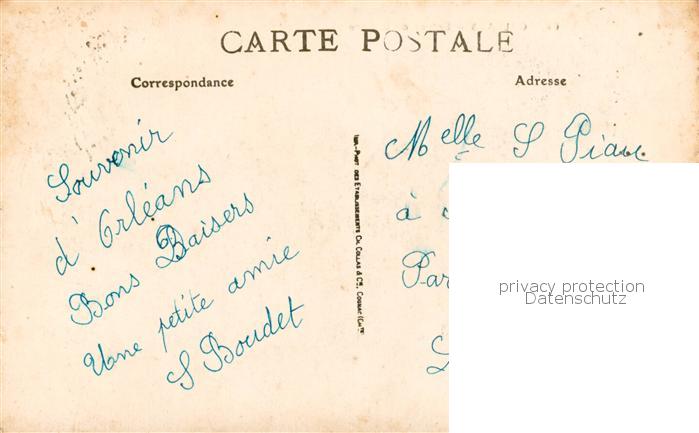 CARTE POSTALE
Correspondance
Adresse
Souvenir
d'Orléans
Bons Baisers
Une petite amie
S Boudet
IMP.-PHOT DES ETABLISSEMENTS CH. COLLAS & Cie, COGNAC (Chte)
Melle S Piau
à
Par
privacy protection
Datenschutz